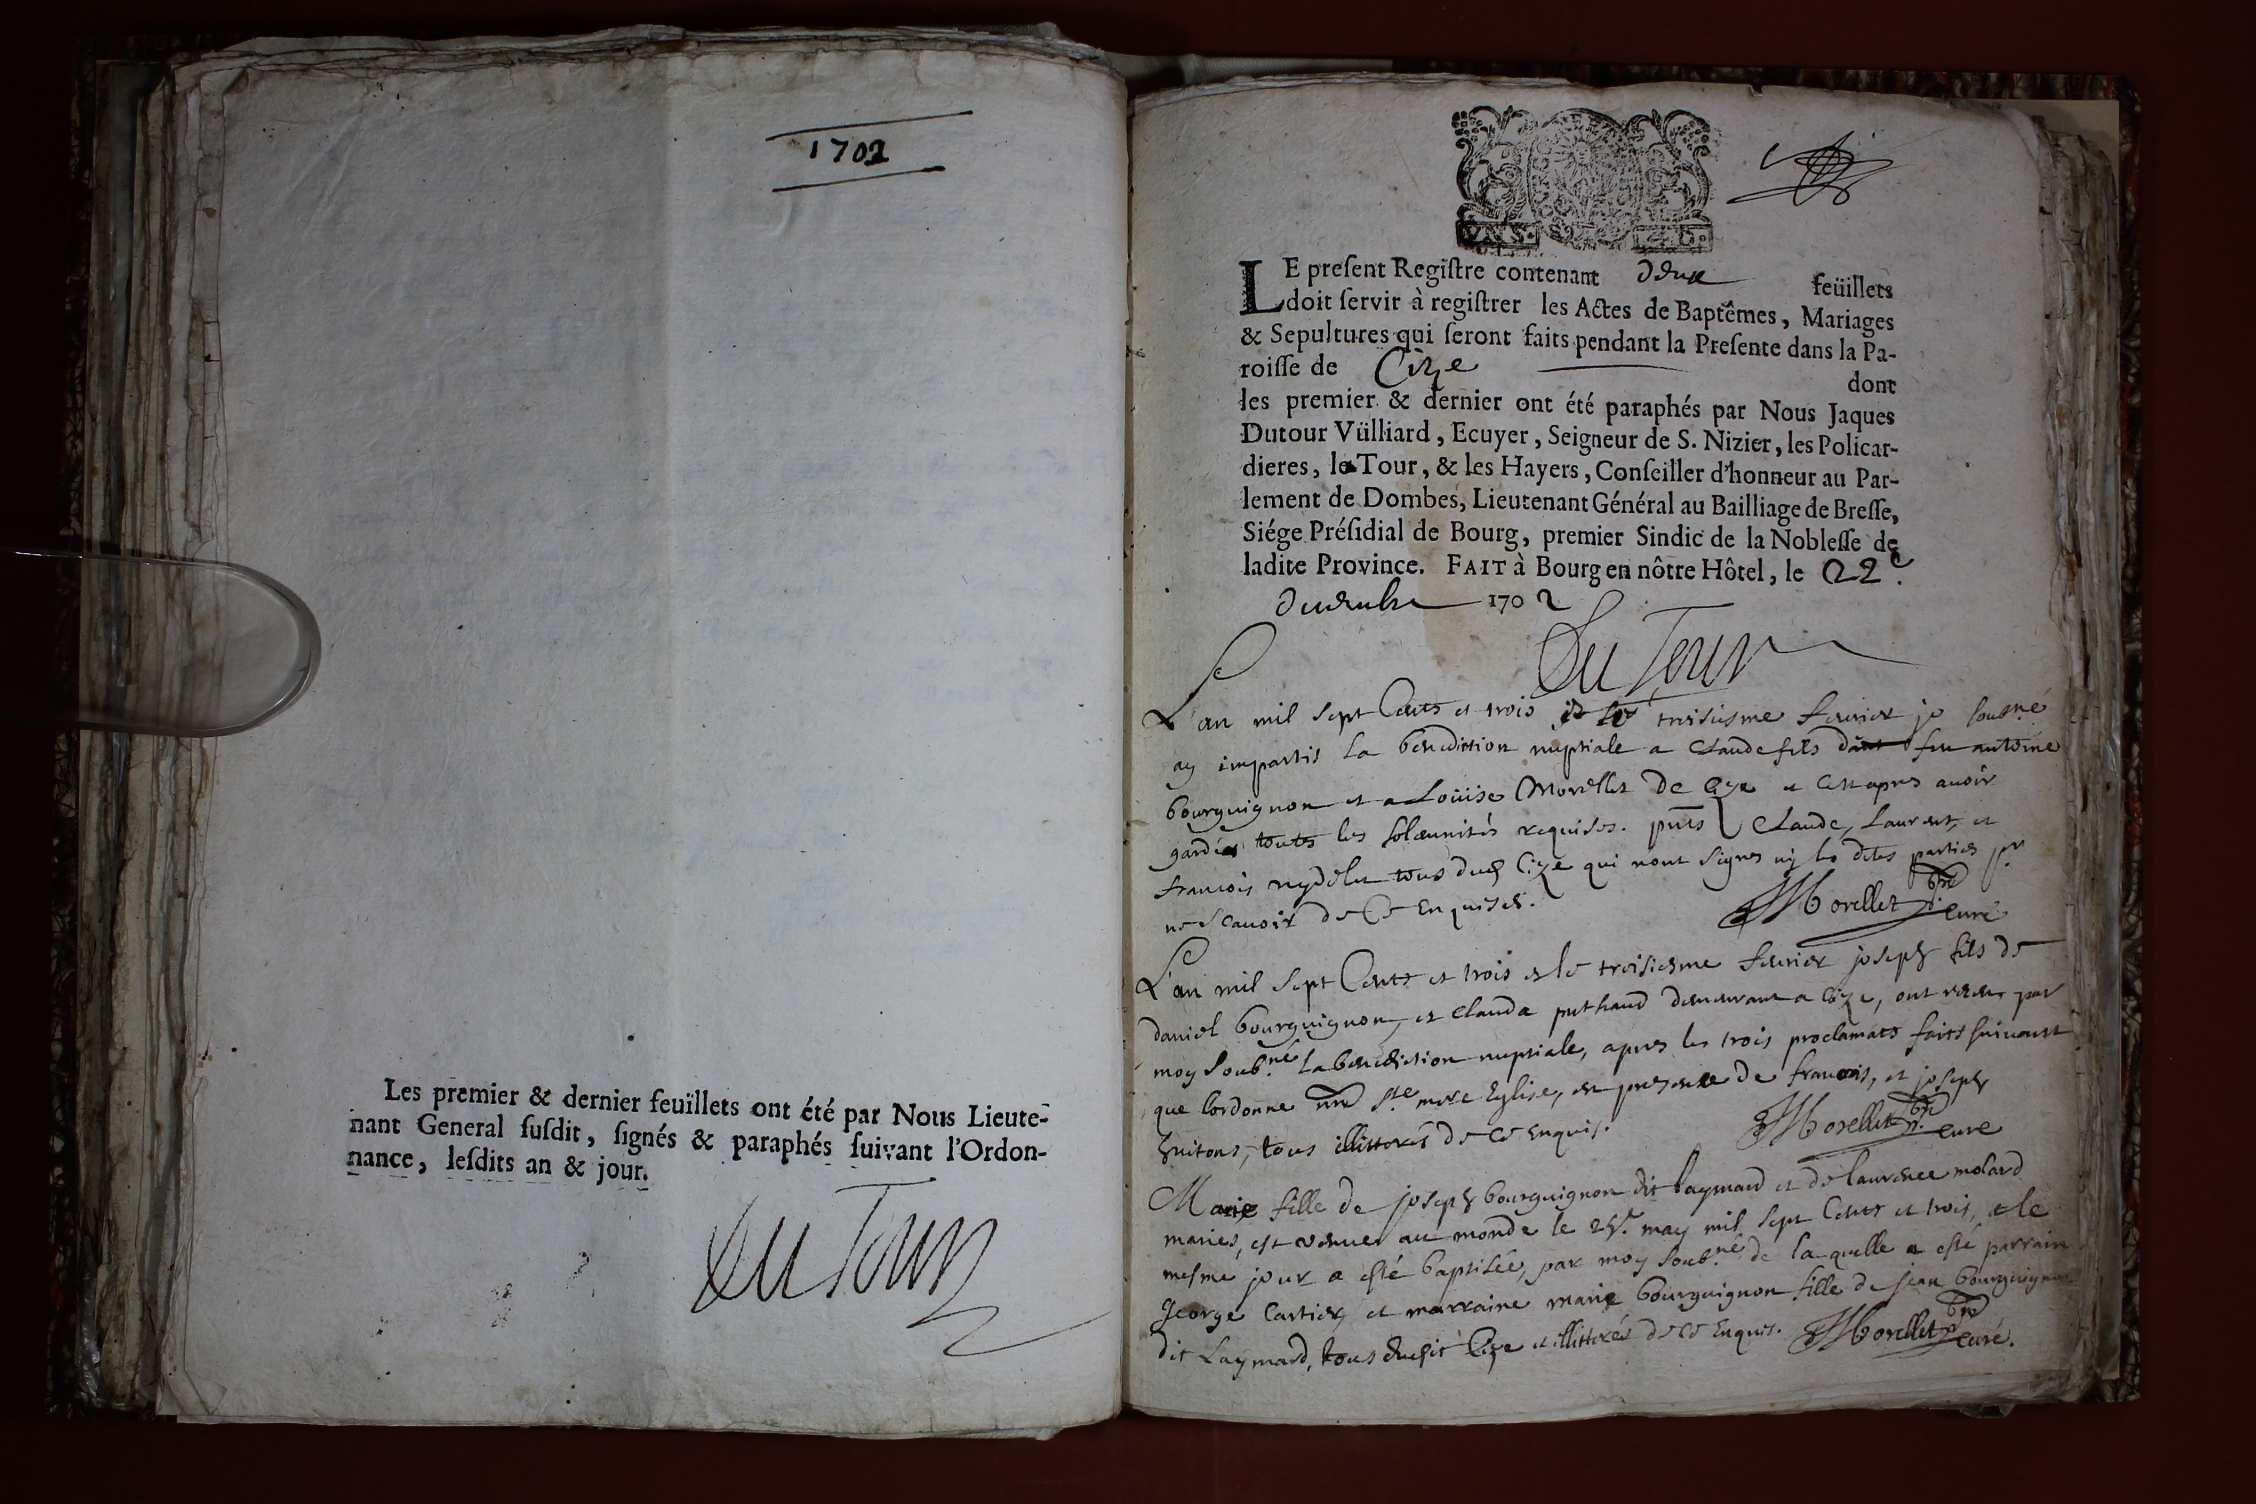 1702
Les premier & dernier feuillets ont été par Nous Lieute-
nant General ſuſdit, ſignés & paraphés ſuivant l'Ordon-
nance, leſdits an & jour.
DuTour
LE preſent Regiſtre contenant deux feüillets
doit ſervir à regiſtrer les Actes de Baptêmes, Mariages
& Sepultures qui ſeront faits pendant la Preſente dans la Pa-
roiſſe de Cize dont
les premier & dernier ont été paraphés par Nous Jaques
Dutour Vülliard, Ecuyer, Seigneur de S. Nizier, les Policar-
dieres, la Tour, & les Hayers, Conſeiller d'honneur au Par-
lement de Dombes, Lieutenant Général au Bailliage de Breſſe,
Siége Préſidial de Bourg, premier Sindic de la Nobleſſe de
ladite Province. FAIT à Bourg en nôtre Hôtel, le 22e.
decembre 1702
DuTour
L'an mil sept Cents et trois et le troisiesme feurier je soubné
ay impartis la benediction nuptiale a Claude fils feu antoine
bourguignon et a Loüise Morellet de Cize et cest apres auoir
gardées toutes les solemnités requises. pnts Claude, Laurent, et
francois tous dud Cize qui nont signes ny les dites parties pr
ne scauoir de Ce Enquises. Morellet pbre Curé
L'an mil sept Cents et trois et le troisiesme feurier joseph fils de
daniel bourguignon, et Clauda puthaud demeurant a Cize, ont receu par
moy soubné la benediction nuptiale, apres les trois proclamats faits suiuant
que lordonne nre Ste mere Eglise, en presence de francois, et joseph
tous illitterés de Ce Enquis. Morellet pbre Curé
Marie fille de joseph bourguignon dit Laymard et de laurence molard
mariés, est venue au monde le may mil sept Cents et trois, et le
mesme jour a esté baptisée, par moy soubné de laquelle a esté parrain
George Cartier, et marraine marie bourguignon fille de jean bourguignon
dit Laymard, tous dudit Cize et illitterés de Ce Enquis. Morellet pbre Curé.